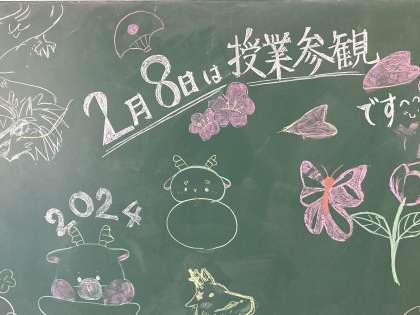 2月8日は授業参観
です
2024